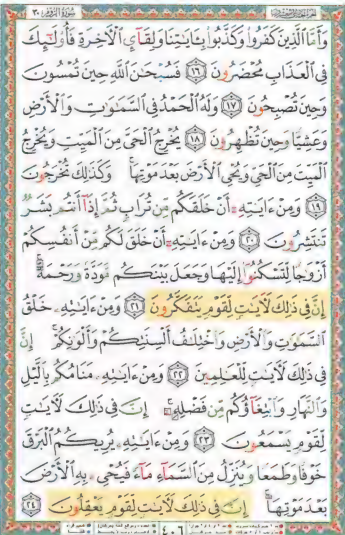 سورة الروم ٣٠
وَأَمَّا الَّذِينَ كَفَرُوا وَكَذَّبُوا بِـَٔايَـٰتِنَا وَلِقَآئِ الْـَٔاخِرَةِ فَأُو۟لَـٰٓئِكَ
فِى الْعَذَابِ مُحْضَرُونَ ١٦ فَسُبْحَـٰنَ اللَّهِ حِينَ تُمْسُونَ
وَحِينَ تُصْبِحُونَ ١٧ وَلَهُ الْحَمْدُ فِى السَّمَـٰوَٰتِ وَالْأَرْضِ
وَعَشِيًّا وَحِينَ تُظْهِرُونَ ١٨ يُخْرِجُ الْحَىَّ مِنَ الْمَيِّتِ وَيُخْرِجُ
الْمَيِّتَ مِنَ الْحَىِّ وَيُحْىِ الْأَرْضَ بَعْدَ مَوْتِهَا ۚ وَكَذَٰلِكَ تُخْرَجُونَ
١٩ وَمِنْ ءَايَـٰتِهِۦٓ أَنْ خَلَقَكُم مِّن تُرَابٍ ثُمَّ إِذَآ أَنتُم بَشَرٌ
تَنتَشِرُونَ ٢٠ وَمِنْ ءَايَـٰتِهِۦٓ أَنْ خَلَقَ لَكُم مِّنْ أَنفُسِكُمْ
أَزْوَٰجًا لِّتَسْكُنُوٓا إِلَيْهَا وَجَعَلَ بَيْنَكُم مَّوَدَّةً وَرَحْمَةً ۚ
إِنَّ فِى ذَٰلِكَ لَـَٔايَـٰتٍ لِّقَوْمٍ يَتَفَكَّرُونَ ٢١ وَمِنْ ءَايَـٰتِهِۦ خَلْقُ
السَّمَـٰوَٰتِ وَالْأَرْضِ وَاخْتِلَـٰفُ أَلْسِنَتِكُمْ وَأَلْوَٰنِكُمْ ۚ إِنَّ
فِى ذَٰلِكَ لَـَٔايَـٰتٍ لِّلْعَـٰلِمِينَ ٢٢ وَمِنْ ءَايَـٰتِهِۦ مَنَامُكُم بِالَّيْلِ
وَالنَّهَارِ وَابْتِغَآؤُكُم مِّن فَضْلِهِۦٓ ۚ إِنَّ فِى ذَٰلِكَ لَـَٔايَـٰتٍ
لِّقَوْمٍ يَسْمَعُونَ ٢٣ وَمِنْ ءَايَـٰتِهِۦ يُرِيكُمُ الْبَرْقَ
خَوْفًا وَطَمَعًا وَيُنَزِّلُ مِنَ السَّمَآءِ مَآءً فَيُحْىِۦ بِهِ الْأَرْضَ
بَعْدَ مَوْتِهَآ ۚ إِنَّ فِى ذَٰلِكَ لَـَٔايَـٰتٍ لِّقَوْمٍ يَعْقِلُونَ ٢٤
٤٠٦